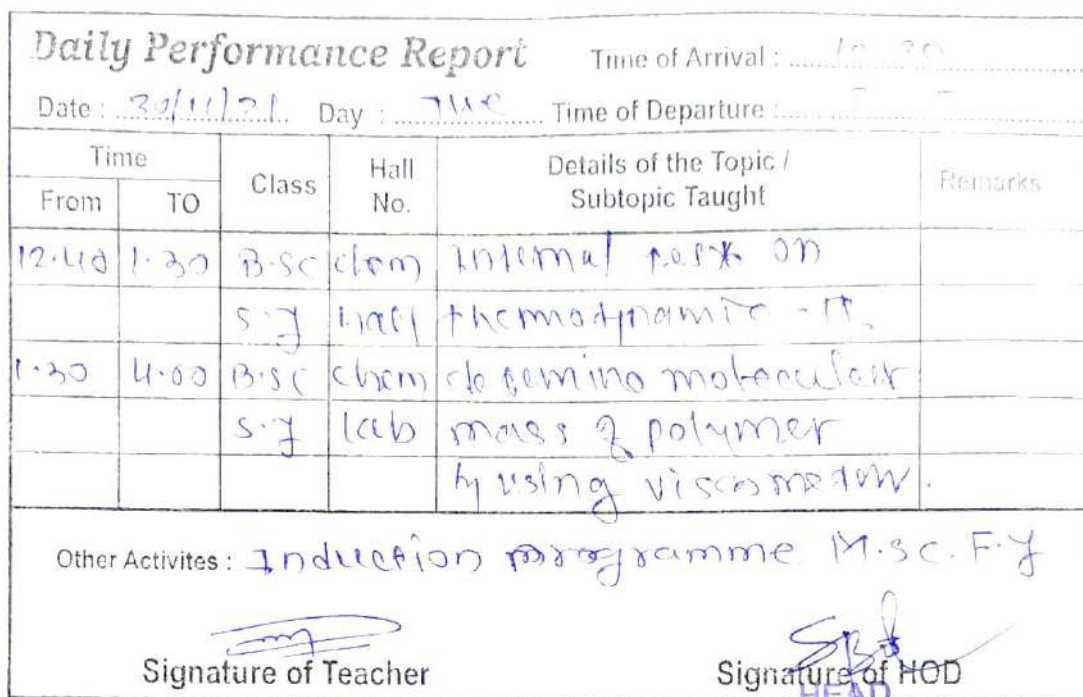 Daily Performance Report Time of Arrival : 10.30
Date : 30/11/21 Day : Tue Time of Departure :
Time Class Hall No. Details of the Topic / Subtopic Taught Remarks
From TO
12.40 1.30 B.Sc chem Internal test on
S.Y hall thermodynamic - II.
1.30 4.00 B.Sc chem molecular
S.Y lab mass of polymer
by using viscometer.
Other Activites : Induction programme M.Sc. F.Y
Signature of Teacher Signature of HOD
HEAD